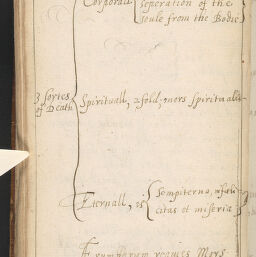 Corporall seperation of the
soule from the Bodie
3 sortes
of Death
Spirituall, 2fold, mors spiritualis
Eternall, is Sempiterna infœli
citas et miseria
requies Mors